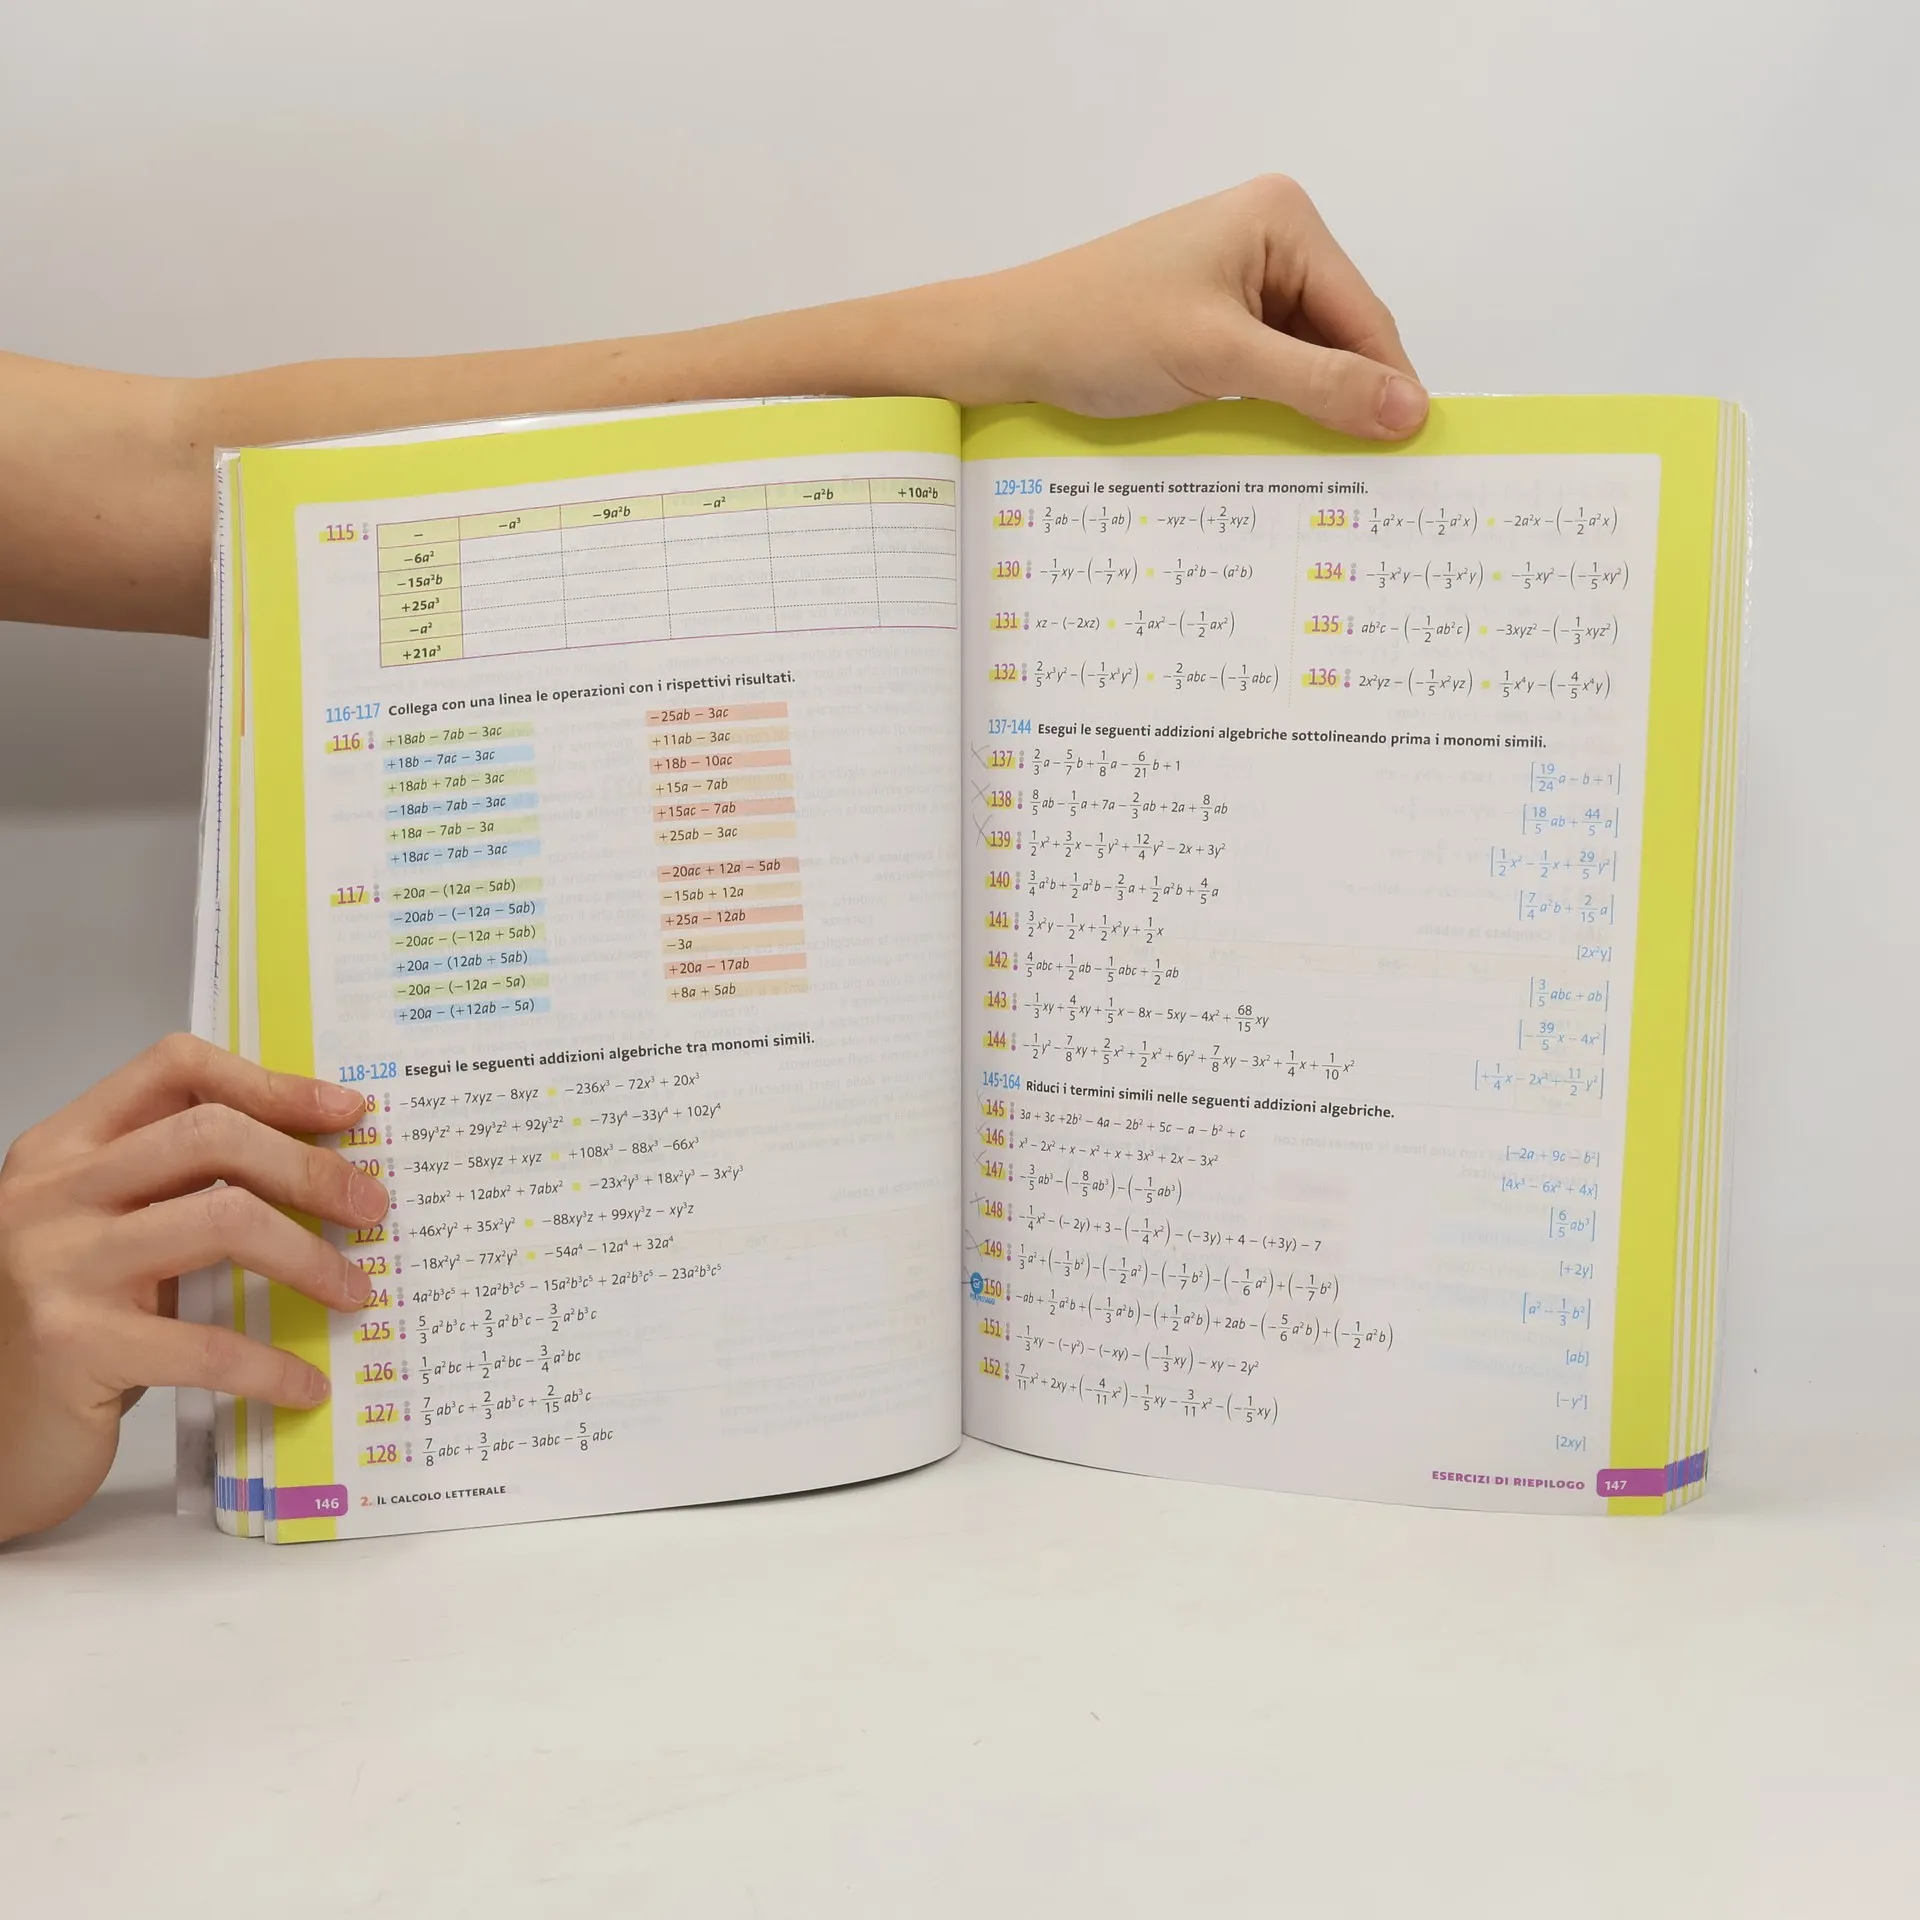 115
− −a³ −9a²b −a² −a²b +10a²b
−6a²
−15a²b
+25a³
−a²
+21a³
116-117 Collega con una linea le operazioni con i rispettivi risultati.
116 +18ab − 7ab − 3ac −25ab − 3ac
+18b − 7ac − 3ac +11ab − 3ac
+18ab + 7ab − 3ac +18b − 10ac
−18ab − 7ab − 3ac +15a − 7ab
+18a − 7ab − 3a +15ac − 7ab
+18ac − 7ab − 3ac +25ab − 3ac
117 +20a − (12a − 5ab) −20ac + 12a − 5ab
−20ab − (−12a − 5ab) −15ab + 12a
−20ac − (−12a + 5ab) +25a − 12ab
+20a − (12ab + 5ab) −3a
−20a − (−12a − 5a) +20a − 17ab
+20a − (+12ab − 5a) +8a + 5ab
118-128 Esegui le seguenti addizioni algebriche tra monomi simili.
8 −54xyz + 7xyz − 8xyz −236x³ − 72x³ + 20x³
119 +89y³z² + 29y³z² + 92y³z² −73y⁴ −33y⁴ + 102y⁴
20 −34xyz − 58xyz + xyz +108x³ − 88x³ −66x³
−3abx² + 12abx² + 7abx² −23x²y³ + 18x²y³ − 3x²y³
122 +46x²y² + 35x²y² −88xy³z + 99xy³z − xy³z
123 −18x²y² − 77x²y² −54a⁴ − 12a⁴ + 32a⁴
24 4a²b³c⁵ + 12a²b³c⁵ − 15a²b³c⁵ + 2a²b³c⁵ − 23a²b³c⁵
125 5/3 a²b³c + 2/3 a²b³c − 3/2 a²b³c
126 1/5 a²bc + 1/2 a²bc − 3/4 a²bc
127 7/5 ab³c + 2/3 ab³c + 2/15 ab³c
128 7/8 abc + 3/2 abc − 3abc − 5/8 abc
146 2. IL CALCOLO LETTERALE
129-136 Esegui le seguenti sottrazioni tra monomi simili.
129 2/3 ab − (−1/3 ab) −xyz − (+2/3 xyz)
130 −1/7 xy − (−1/7 xy) −1/5 a²b − (a²b)
131 xz − (−2xz) −1/4 ax² − (−1/2 ax²)
132 2/5 x³y² − (−1/5 x³y²) −2/3 abc − (−1/3 abc)
133 1/4 a²x − (−1/2 a²x) −2a²x − (−1/2 a²x)
134 −1/3 x²y − (−1/3 x²y) −1/5 xy² − (−1/5 xy²)
135 ab²c − (−1/2 ab²c) −3xyz² − (−1/3 xyz²)
136 2x²yz − (−1/5 x²yz) 1/5 x⁴y − (−4/5 x⁴y)
137-144 Esegui le seguenti addizioni algebriche sottolineando prima i monomi simili.
137 2/3 a − 5/7 b + 1/8 a − 6/21 b + 1 [19/24 a − b + 1]
138 8/5 ab − 1/5 a + 7a − 2/3 ab + 2a + 8/3 ab [18/5 ab + 44/5 a]
139 1/2 x² + 3/2 x − 1/5 y² + 12/4 y² − 2x + 3y² [1/2 x² − 1/2 x + 29/5 y²]
140 3/4 a²b + 1/2 a²b − 2/3 a + 1/2 a²b + 4/5 a [7/4 a²b + 2/15 a]
141 3/2 x²y − 1/2 x + 1/2 x²y + 1/2 x [2x²y]
142 4/5 abc + 1/2 ab − 1/5 abc + 1/2 ab [3/5 abc + ab]
143 −1/3 xy + 4/5 xy + 1/5 x − 8x − 5xy − 4x² + 68/15 xy [−39/5 x − 4x²]
144 −1/2 y² − 7/8 xy + 2/5 x² + 1/2 x² + 6y² + 7/8 xy − 3x² + 1/4 x + 1/10 x² [+1/4 x − 2x² + 11/2 y²]
145-164 Riduci i termini simili nelle seguenti addizioni algebriche.
145 3a + 3c +2b² − 4a − 2b² + 5c − a − b² + c [−2a + 9c − b²]
146 x³ − 2x² + x − x² + x + 3x³ + 2x − 3x² [4x³ − 6x² + 4x]
147 −3/5 ab³ − (−8/5 ab³) − (−1/5 ab³) [6/5 ab³]
148 −1/4 x² − (−2y) + 3 − (−1/4 x²) − (−3y) + 4 − (+3y) − 7 [+2y]
149 1/3 a² + (−1/3 b²) − (−1/2 a²) − (−1/7 b²) − (−1/6 a²) + (−1/7 b²) [a² − 1/3 b²]
150 −ab + 1/2 a²b + (−1/3 a²b) − (+1/2 a²b) + 2ab − (−5/6 a²b) + (−1/2 a²b) [ab]
151 −1/3 xy − (−y²) − (−xy) − (−1/3 xy) − xy − 2y² [−y²]
152 7/11 x² + 2xy + (−4/11 x²) − 1/5 xy − 3/11 x² − (−1/5 xy) [2xy]
ESERCIZI DI RIEPILOGO 147